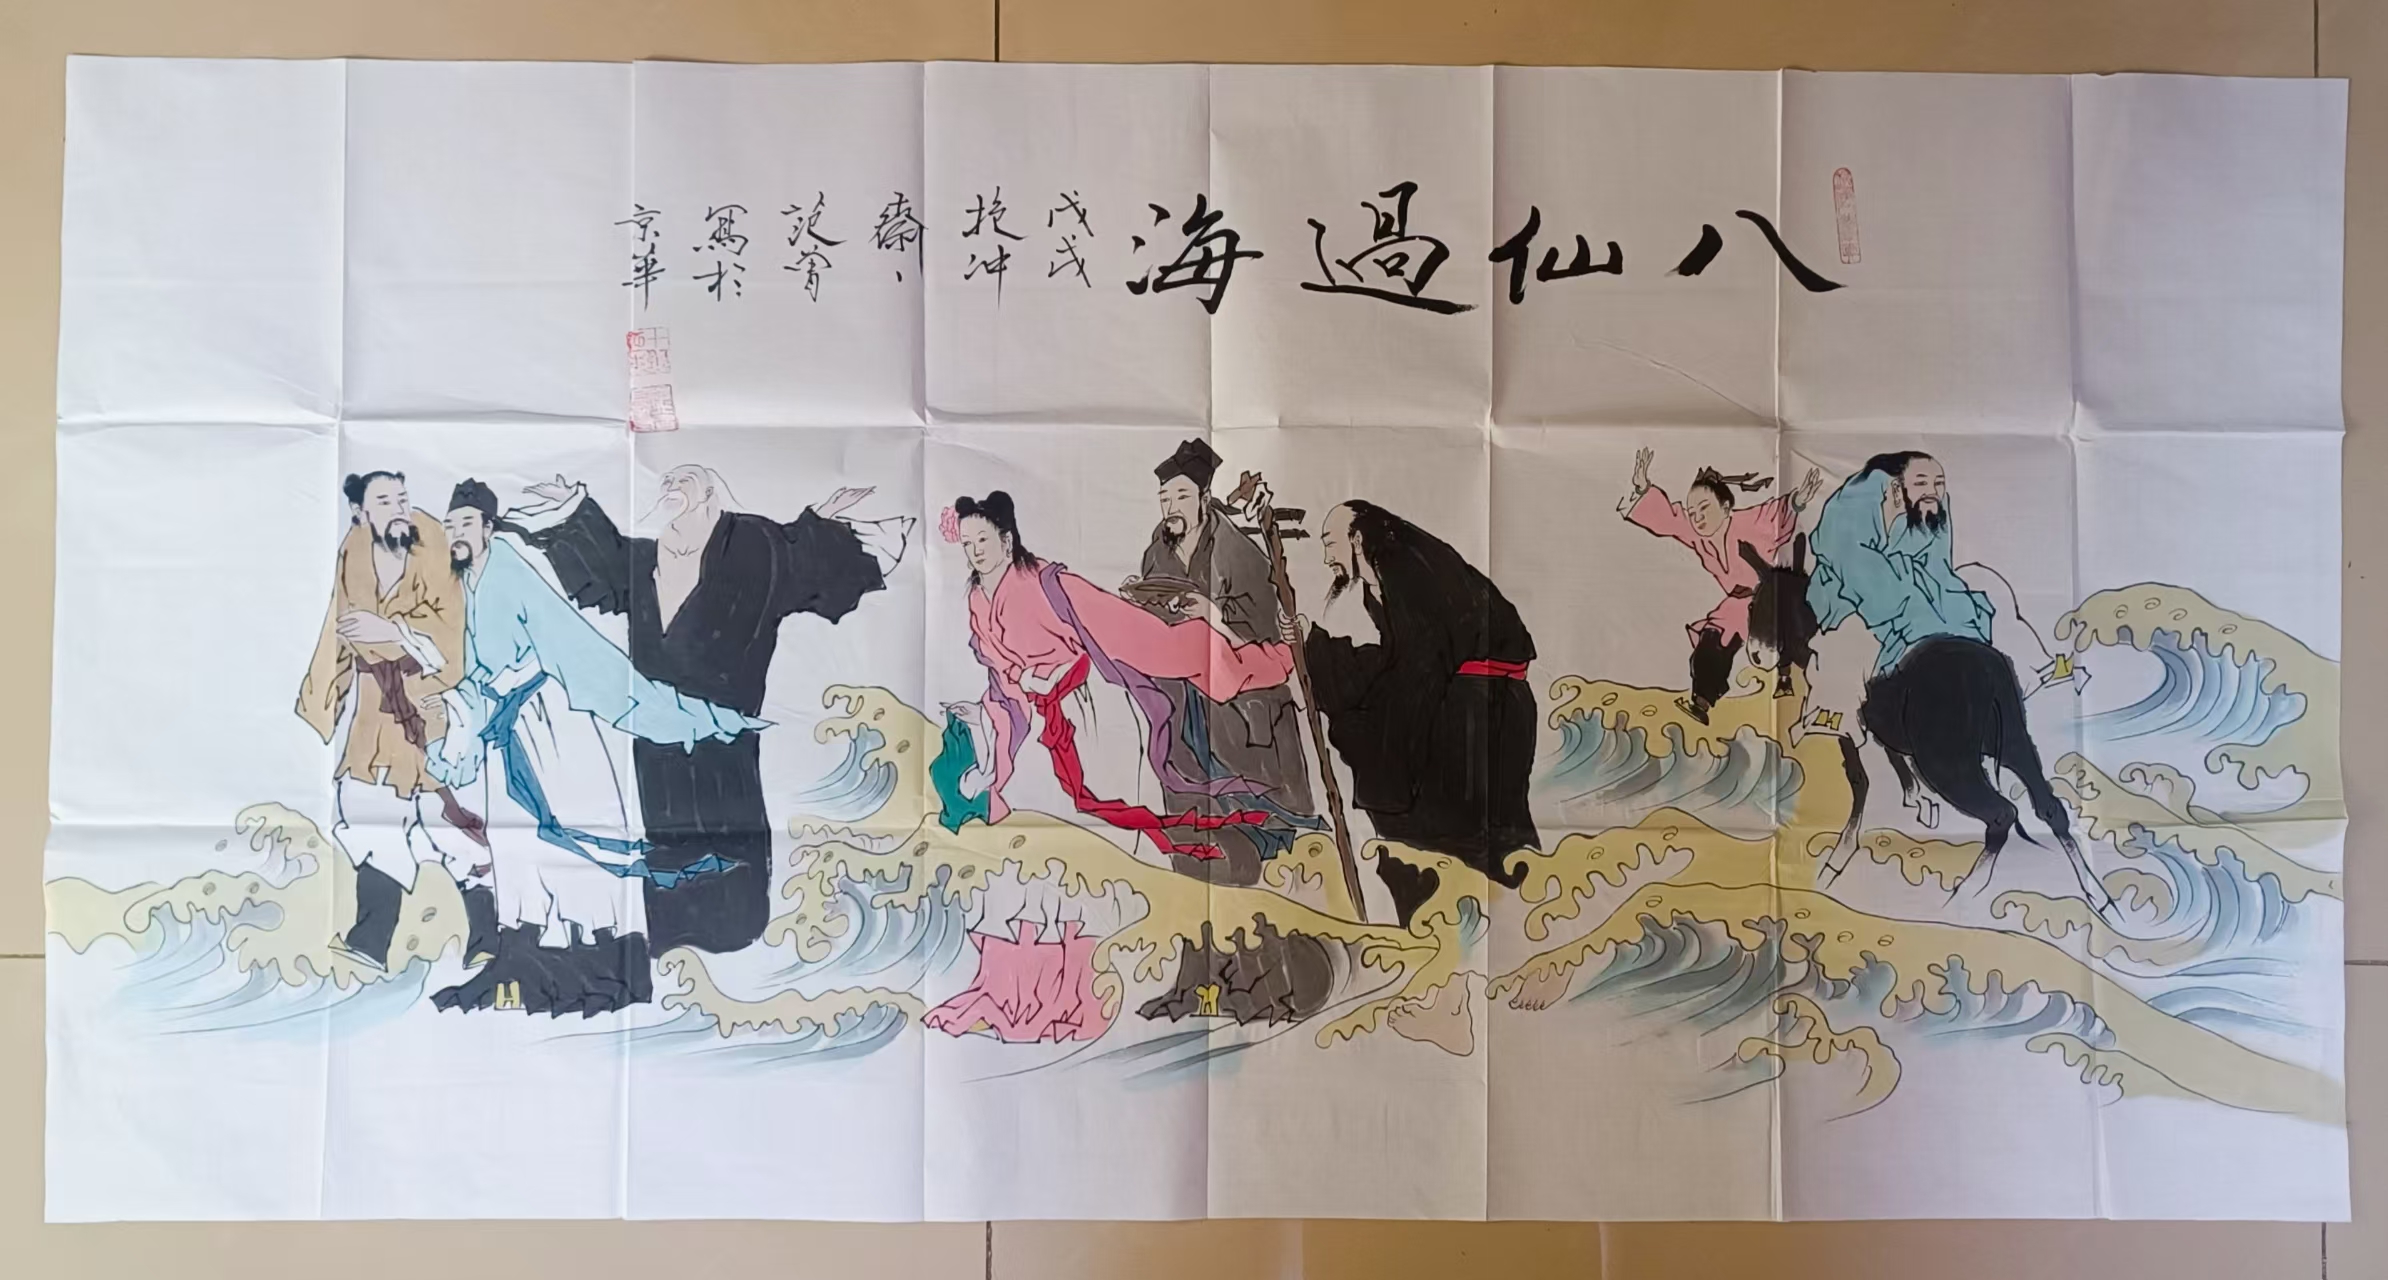 八仙過海
戊戌
抱冲
齋、
范曾
寫於
京華